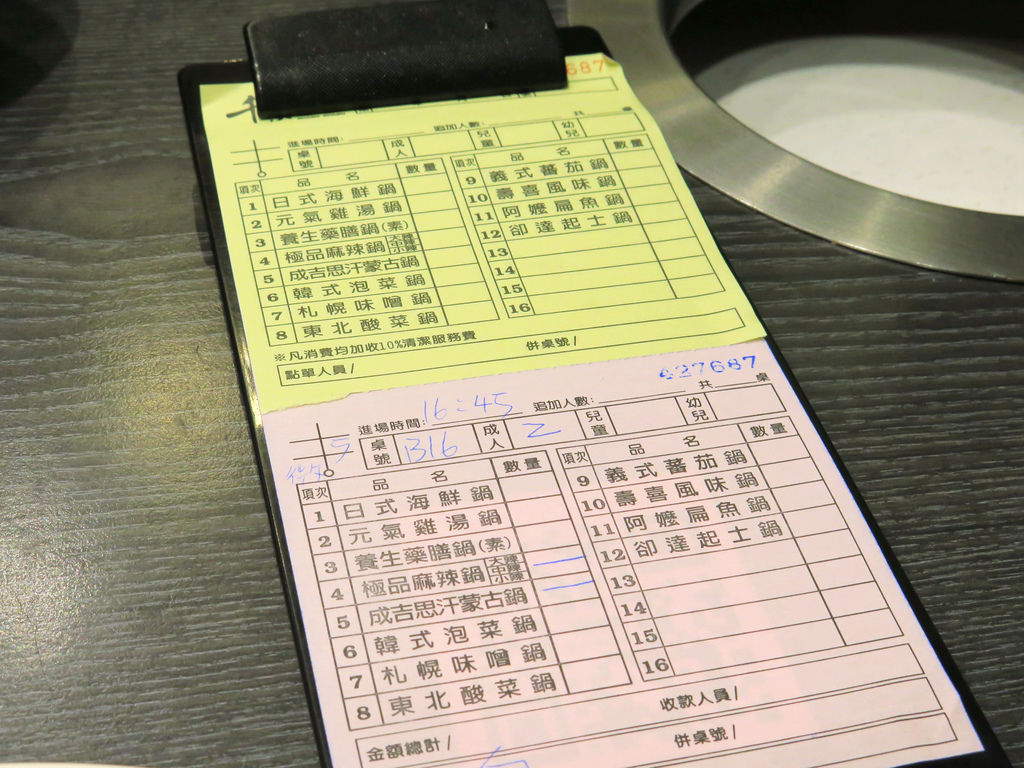 687
共
進場時間: 追加人數:
桌號 成人 兒童 幼兒
項次 品名 數量 項次 品名 數量
1 日式海鮮鍋 9 義式蕃茄鍋
2 元氣雞湯鍋 10 壽喜風味鍋
3 養生藥膳鍋(素) 11 阿嬤扁魚鍋
4 極品麻辣鍋 大辣 中辣 小辣 12 卻達起士鍋
5 成吉思汗蒙古鍋 13
6 韓式泡菜鍋 14
7 札幌味噌鍋 15
8 東北酸菜鍋 16
※凡消費均加收10%清潔服務費
點單人員/ 併桌號/
427687
進場時間: 16:45 追加人數: 共 桌
桌號 B16 成人 2 兒童 幼兒
項次 品名 數量 項次 品名 數量
1 日式海鮮鍋 9 義式蕃茄鍋
2 元氣雞湯鍋 10 壽喜風味鍋
3 養生藥膳鍋(素) 11 阿嬤扁魚鍋
4 極品麻辣鍋 大辣 中辣 小辣 12 卻達起士鍋
5 成吉思汗蒙古鍋 13
6 韓式泡菜鍋 14
7 札幌味噌鍋 15
8 東北酸菜鍋 16
收款人員/
金額總計/ 併桌號/